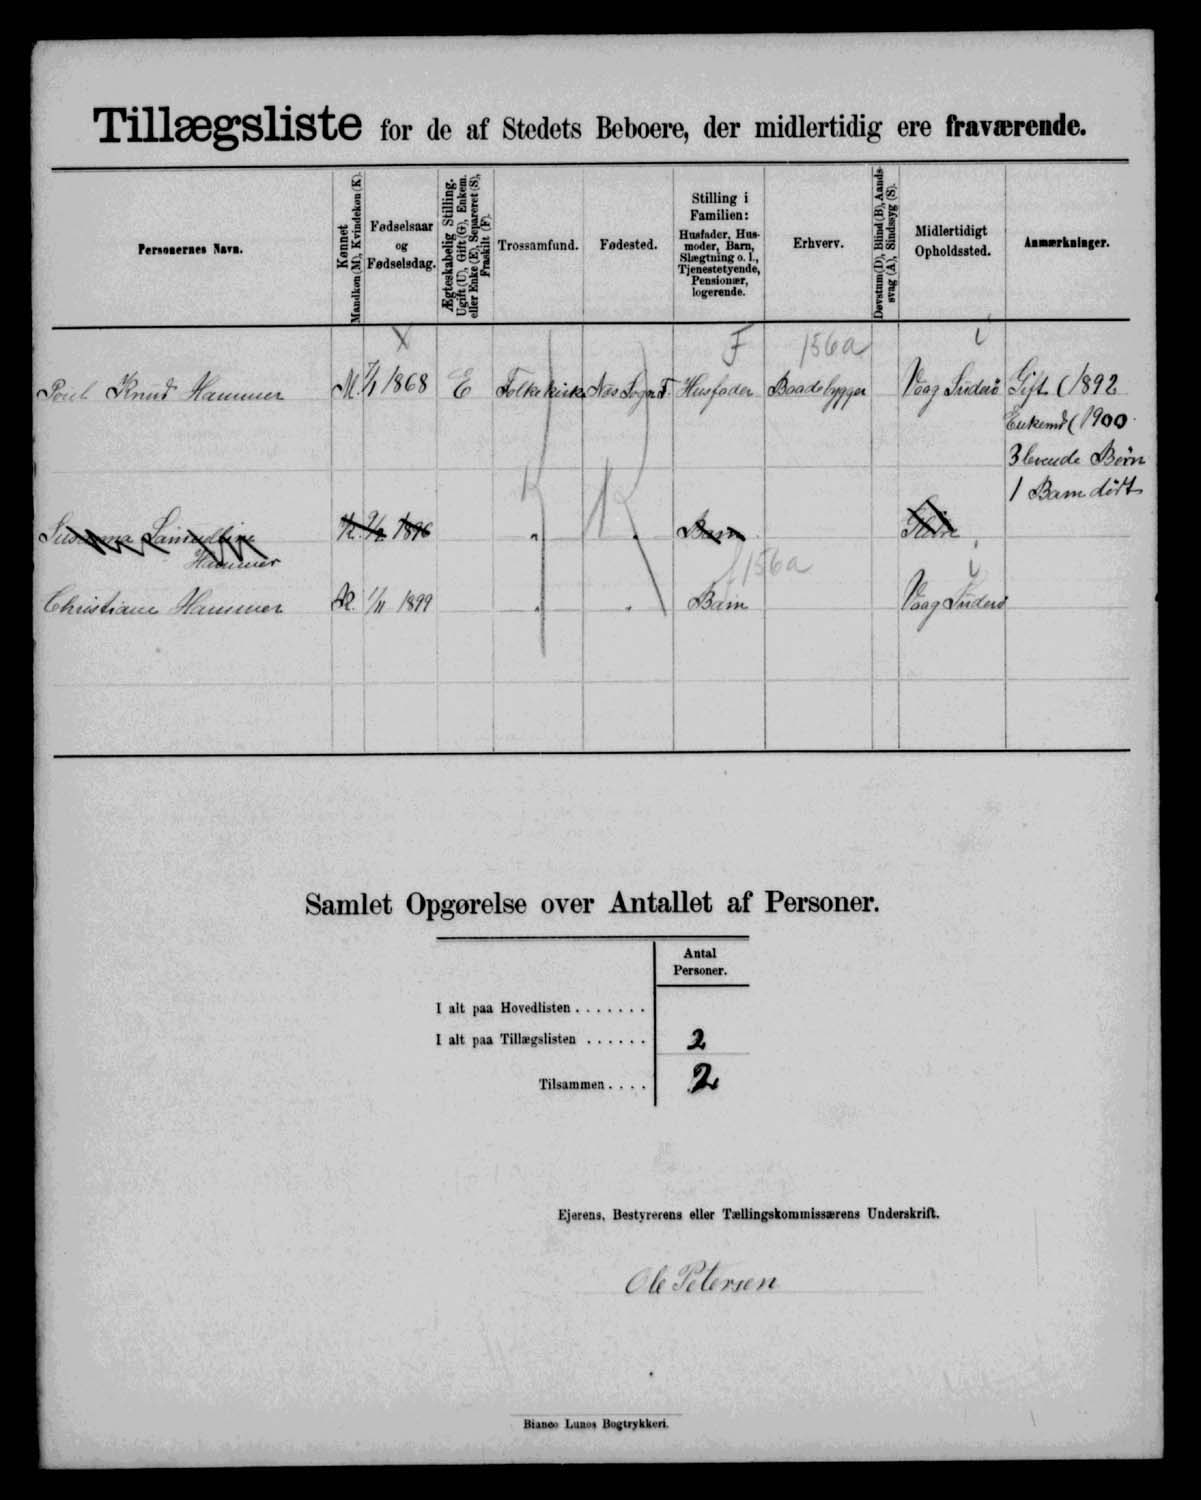 Tillægsliste for de af Stedets Beboere, der midlertidig ere fraværende.
Personernes Navn.
Kønnet
Mandkøn (M), Kvindekøn (K).
Fødselsaar
og
Fødselsdag.
Ægteskabelig Stilling.
Ugift (U), Gift (G), Enkem.
eller Enke (E), Separeret (S),
Fraskilt (F).
Trossamfund.
Fødested.
Stilling i
Familien:
Husfader, Hus-
moder, Barn,
Slægtning o. l.,
Tjenestetyende,
Pensionær,
logerende.
Erhverv.
Døvstum (D), Blind (B), Aands-
svag (A), Sindssyg (S).
Midlertidigt
Opholdssted.
Anmærkninger.
X F 156a
Poul Knud Hammer M. 7/1 1868 E Folkekirke Næs Sogn F. Husfader Baadebygger Vaag Suderø Gift (1892
Enkemd (1900
3 levende Børn
1 Barn dødt
Susanna
Hammer
K. 1896 " " Barn
156a
Christiane Hammer K. 1/11 1899 " " Barn Vaag Suderø
Samlet Opgørelse over Antallet af Personer.
Antal
Personer.
I alt paa Hovedlisten . . . . . . .
I alt paa Tillægslisten . . . . . . 2
Tilsammen . . . . 2
Ejerens, Bestyrerens eller Tællingskommissærens Underskrift.
Ole Petersen
Bianco Lunos Bogtrykkeri.